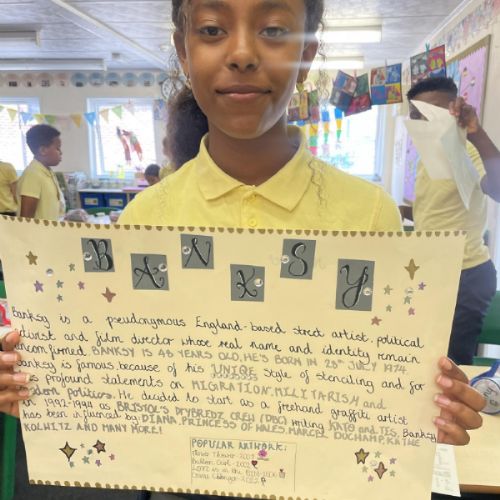 BANKSY
Banksy is a pseudonymous England-based street artist, political
activist and film director whose real name and identity remain
unconfirmed. BANKSY IS 46 YEARS OLD. HE'S BORN IN 28th JULY 1974.
Banksy is famous because of his UNIQE style of stenciling and for
his profound statements on MIGRATION, MILITARISM and
modern politics. He decided to start as a freehand graffiti artist
in 1992-1994 as BRISTOL'S DRYBREDZ CREW (DBC) writing KATO and TES. Banksy
has been influenced by DIANA, PRINCESS OF WALES, MARCEL DUCHAMP, KATHE
KOLWITZ AND MANY MORE!
POPULAR ARTWORK: